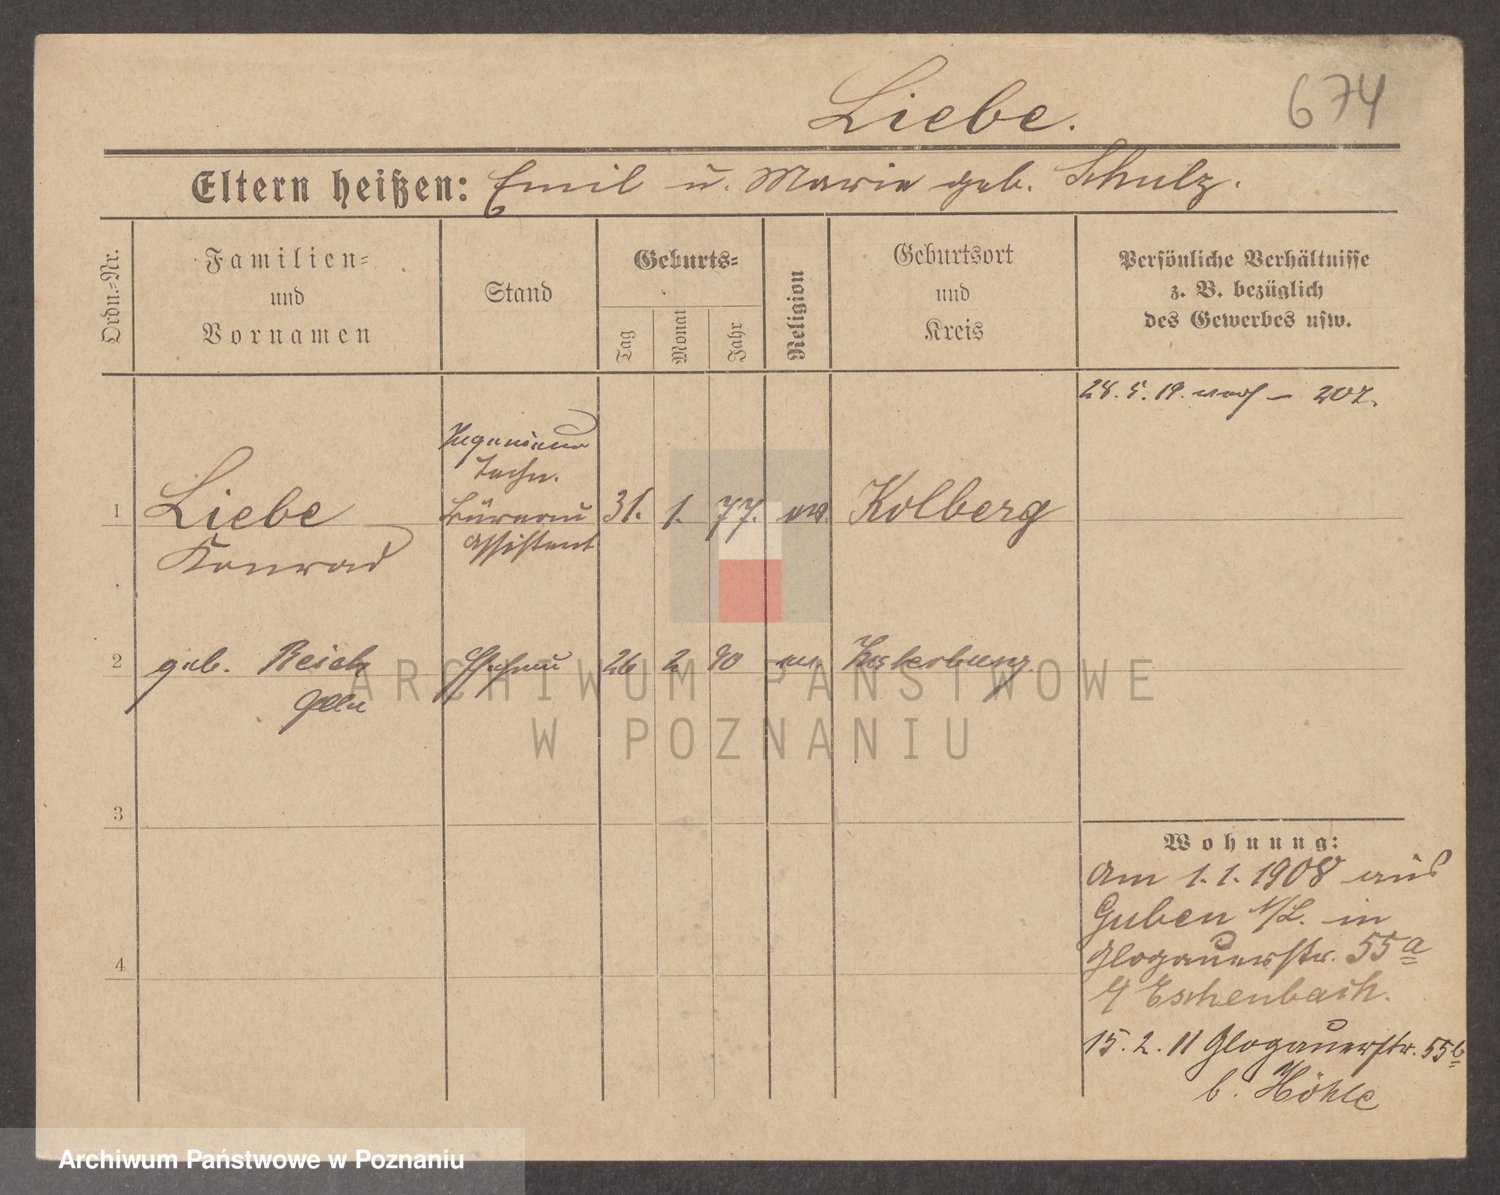 Liebe.
674
Eltern heißen: Emil u. Marie geb. Schulz.
Ordn.-Nr.
Familien-
und
Vornamen
Stand
Geburts-
Tag
Monat
Jahr
Religion
Geburtsort
und
Kreis
Persönliche Verhältnisse
z. B. bezüglich
des Gewerbes usw.
1
Liebe
Konrad
Ingenieur
techn.
Büreau
Assistent
31.
1.
77.
ev.
Kolberg
2
geb. Reich
Ehefrau
26
2
90
ev.
3
4
Wohnung:
Am 1.1.1908 aus
Guben N/L. in
Glogauerstr. 55a
b/ Eschenbach.
15.2.11 Glogauerstr. 55b
b. Höhle
ARCHIWUM PAŃSTWOWE
W POZNANIU
Archiwum Państwowe w Poznaniu